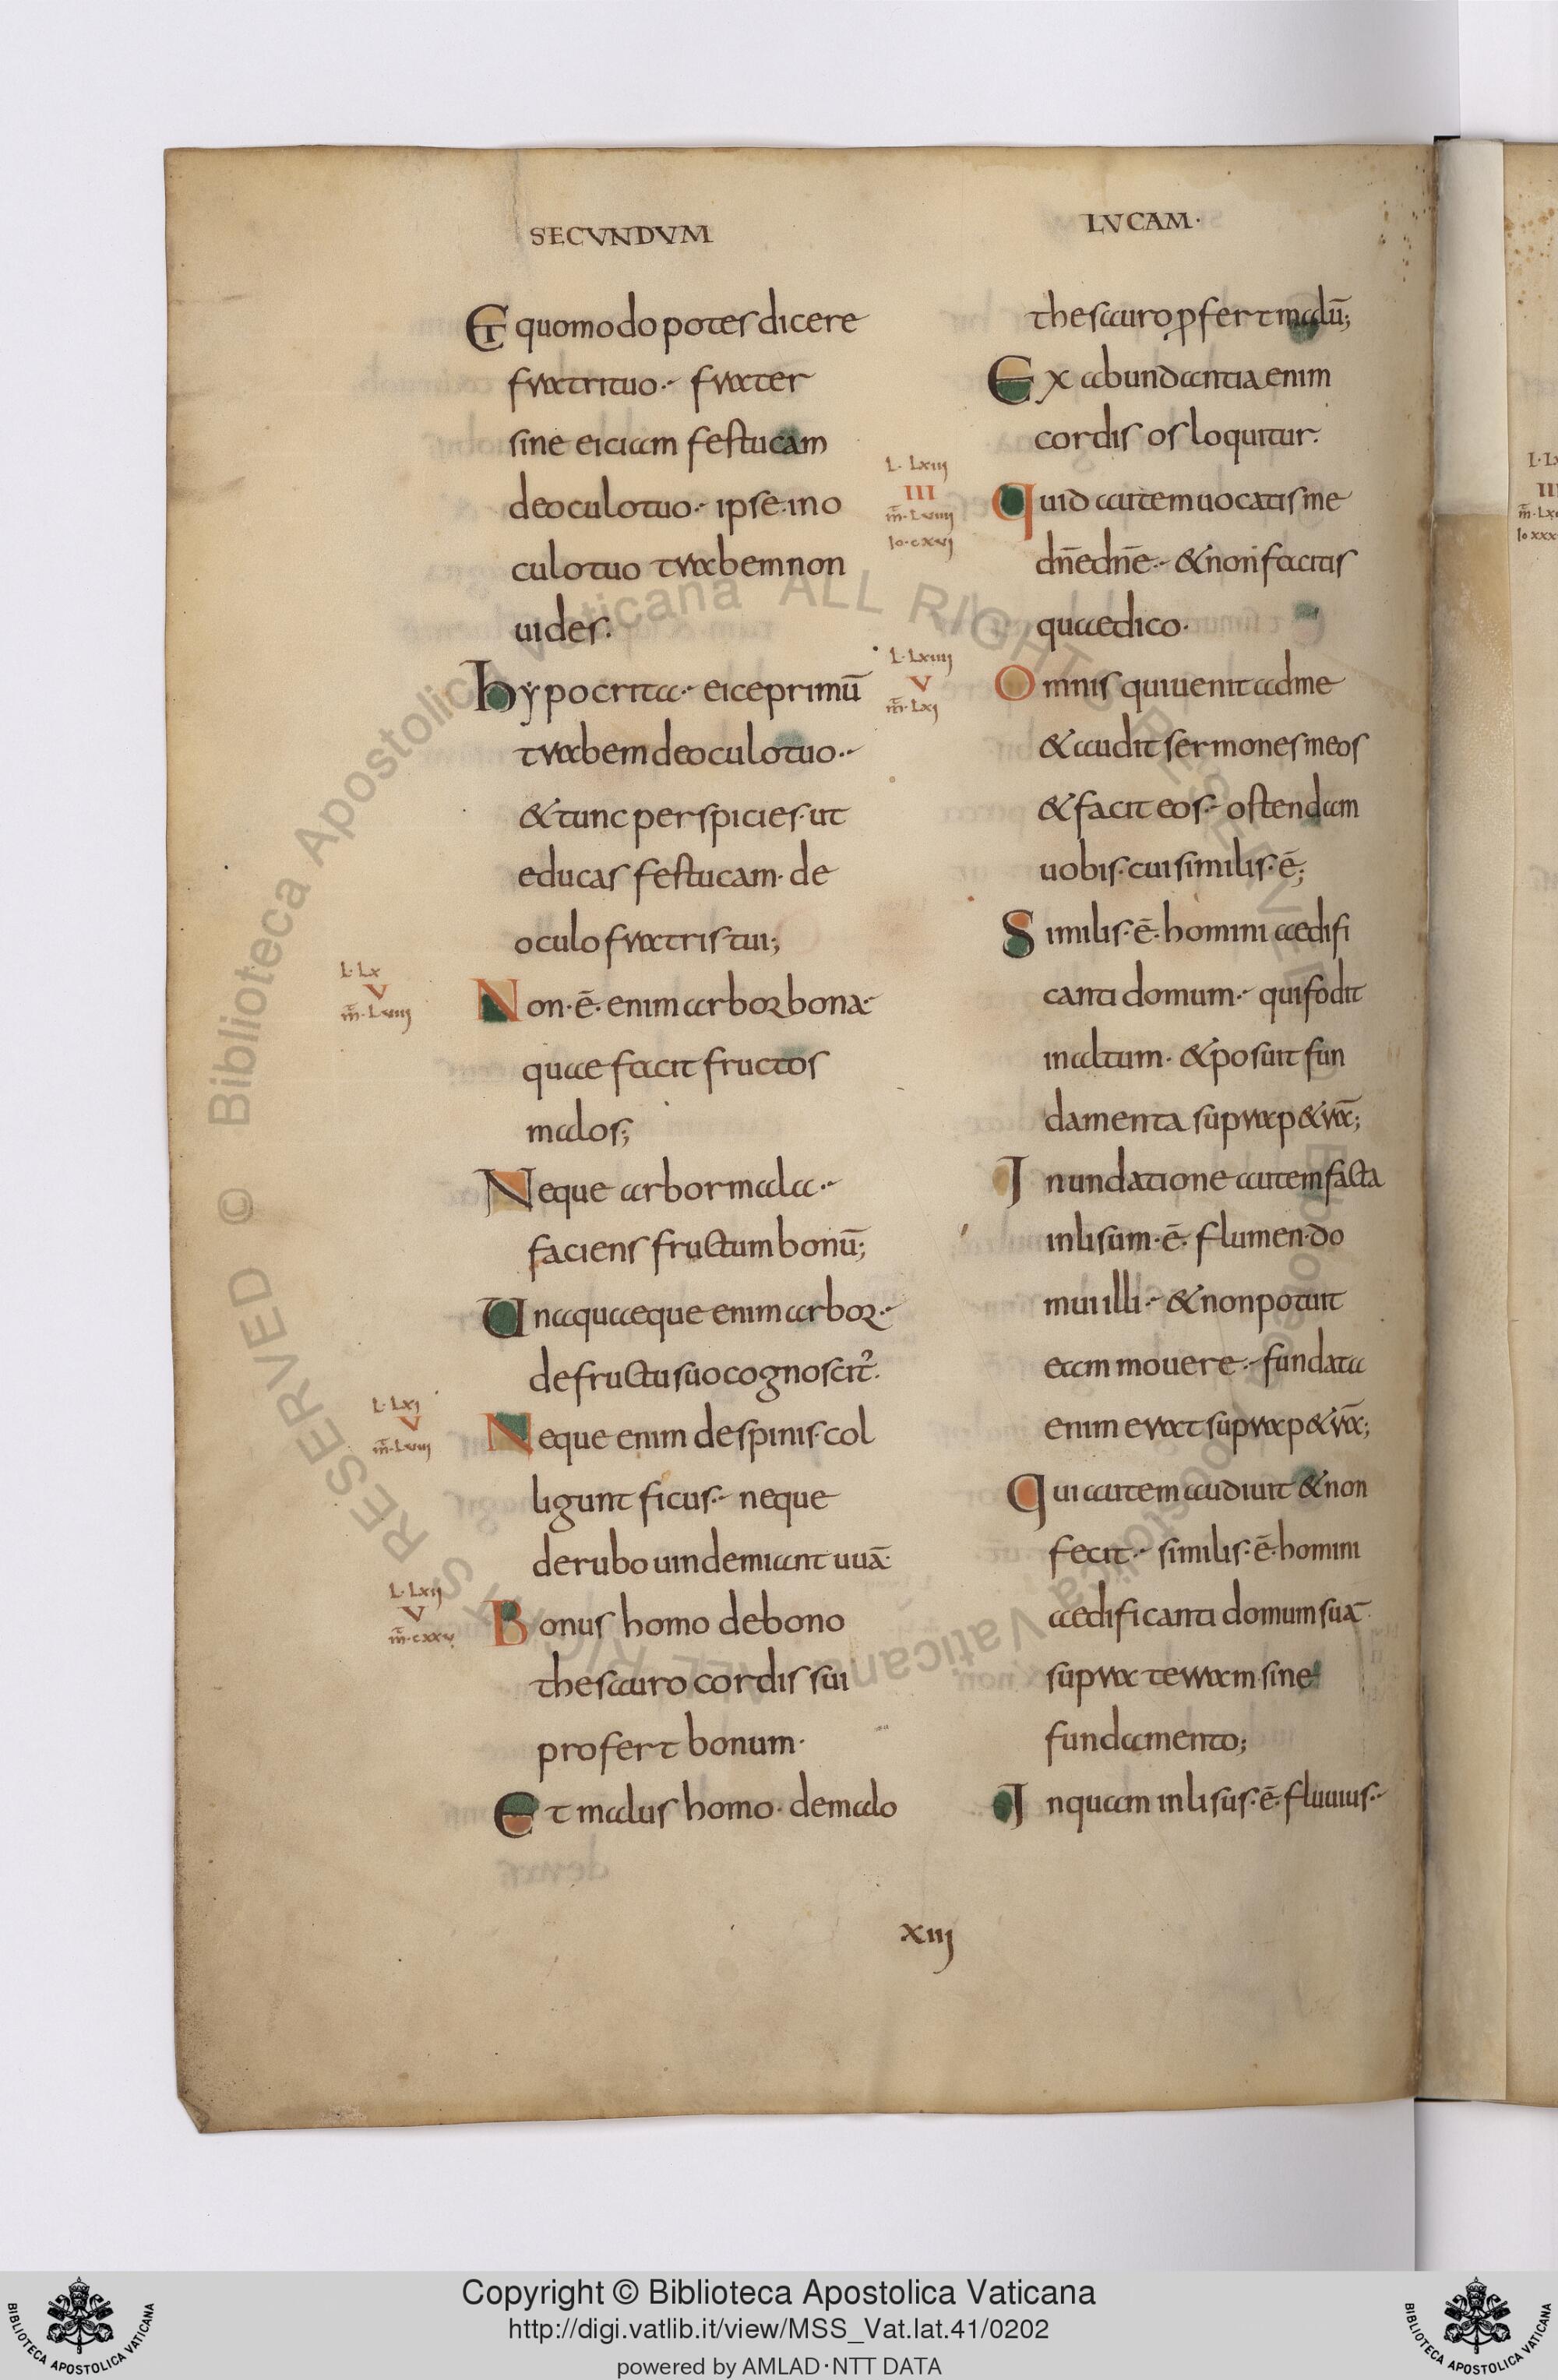 SECVNDVM
Et quomodo potes dicere
fratri tuo· frater
sine eiciam festucam
de oculo tuo· ipse in o
culo tuo trabem non
uides·
hypocrita· eice primū
trabem de oculo tuo·
& tunc perspicies· ut
educas festucam· de
oculo fratris tui;
L·Lx
V
m̄·Lviiii
Non·ē· enim arbor bona·
quae facit fructos
malos;
Neque arbor mala·
faciens fructum bonū;
Unaquaeque enim arbor·
de fructu suo cognoscit᷒·
L·Lxi
V
m̄·Lviii
Neque enim de spinis· col
ligunt ficus· neque
de rubo uindemiant uuā·
L·Lxii
V
m̄·cxxv
Bonus homo de bono
thesauro cordis sui
profert bonum·
Et malus homo· de malo
LVCAM·
thesauro ꝓfert malū;
Ex abundantia enim
cordis os loquitur·
L·Lxiii
III
m̄·Lviiii
Io·cxvi
Quid autem uocatis me
dn̄e dn̄e· & non facitis
quae dico·
L·Lxiiii
V
m̄·Lxi
Omnis qui uenit ad me
& audit sermones meos
& facit eos· ostendam
uobis· cui similis·ē;
Similis·ē· homini aedifi
canti domum· qui fodit
in altum· & posuit fun
damenta supra p&rā;
Inundatione autem facta
inlisum·ē· flumen· do
mui illi· & non potuit
eam mouere· fundata
enim erat supra p&rā;
Qui autem audiuit & non
fecit· similis·ē· homini
aedificanti domum suā
supra terram· sine
fundamento;
In quam inlisus·ē· fluuius·
xiij
Copyright © Biblioteca Apostolica Vaticana
http://digi.vatlib.it/view/MSS_Vat.lat.41/0202
powered by AMLAD·NTT DATA
BIBLIOTECA APOSTOLICA VATICANA
BIBLIOTECA APOSTOLICA VATICANA